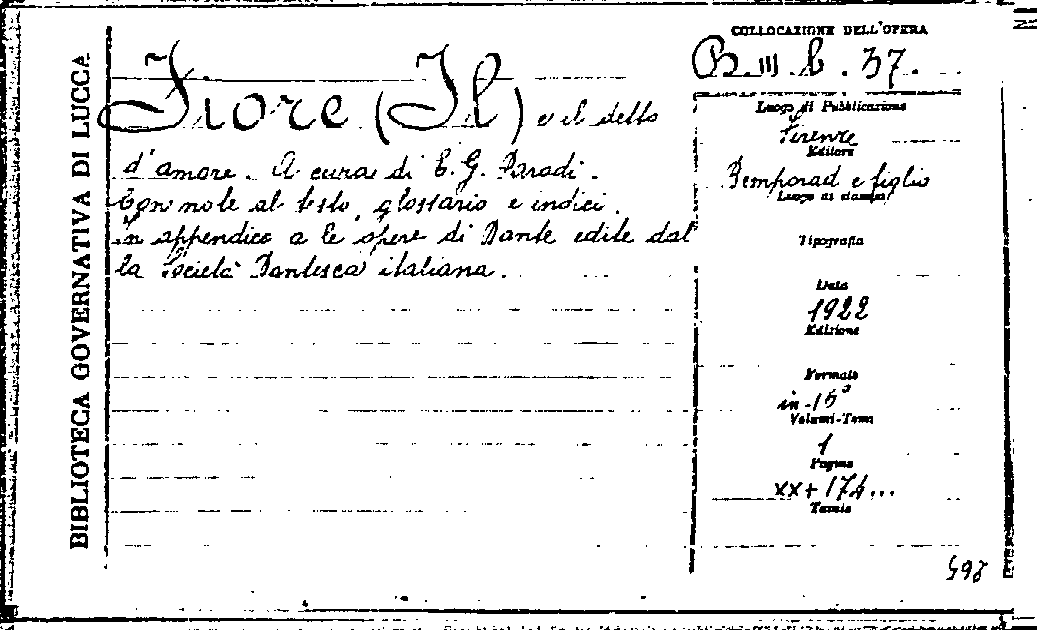 BIBLIOTECA GOVERNATIVA DI LUCCA
Fiore (Il) e il detto
d'amore. A cura di E. G. Parodi.
Con note al testo, glossario e indici.
In appendice a le opere di Dante edite dal
la Società Dantesca italiana.
COLLOCAZIONE DELL'OPERA
B. III. b. 37.
Luogo di Pubblicazione
Firenze
Editore
Bemporad e figlio
Luogo di stampa
Tipografia
Data
1922
Edizione
Formato
in-15°
Volumi-Tomi
1
Pagine
XX+174...